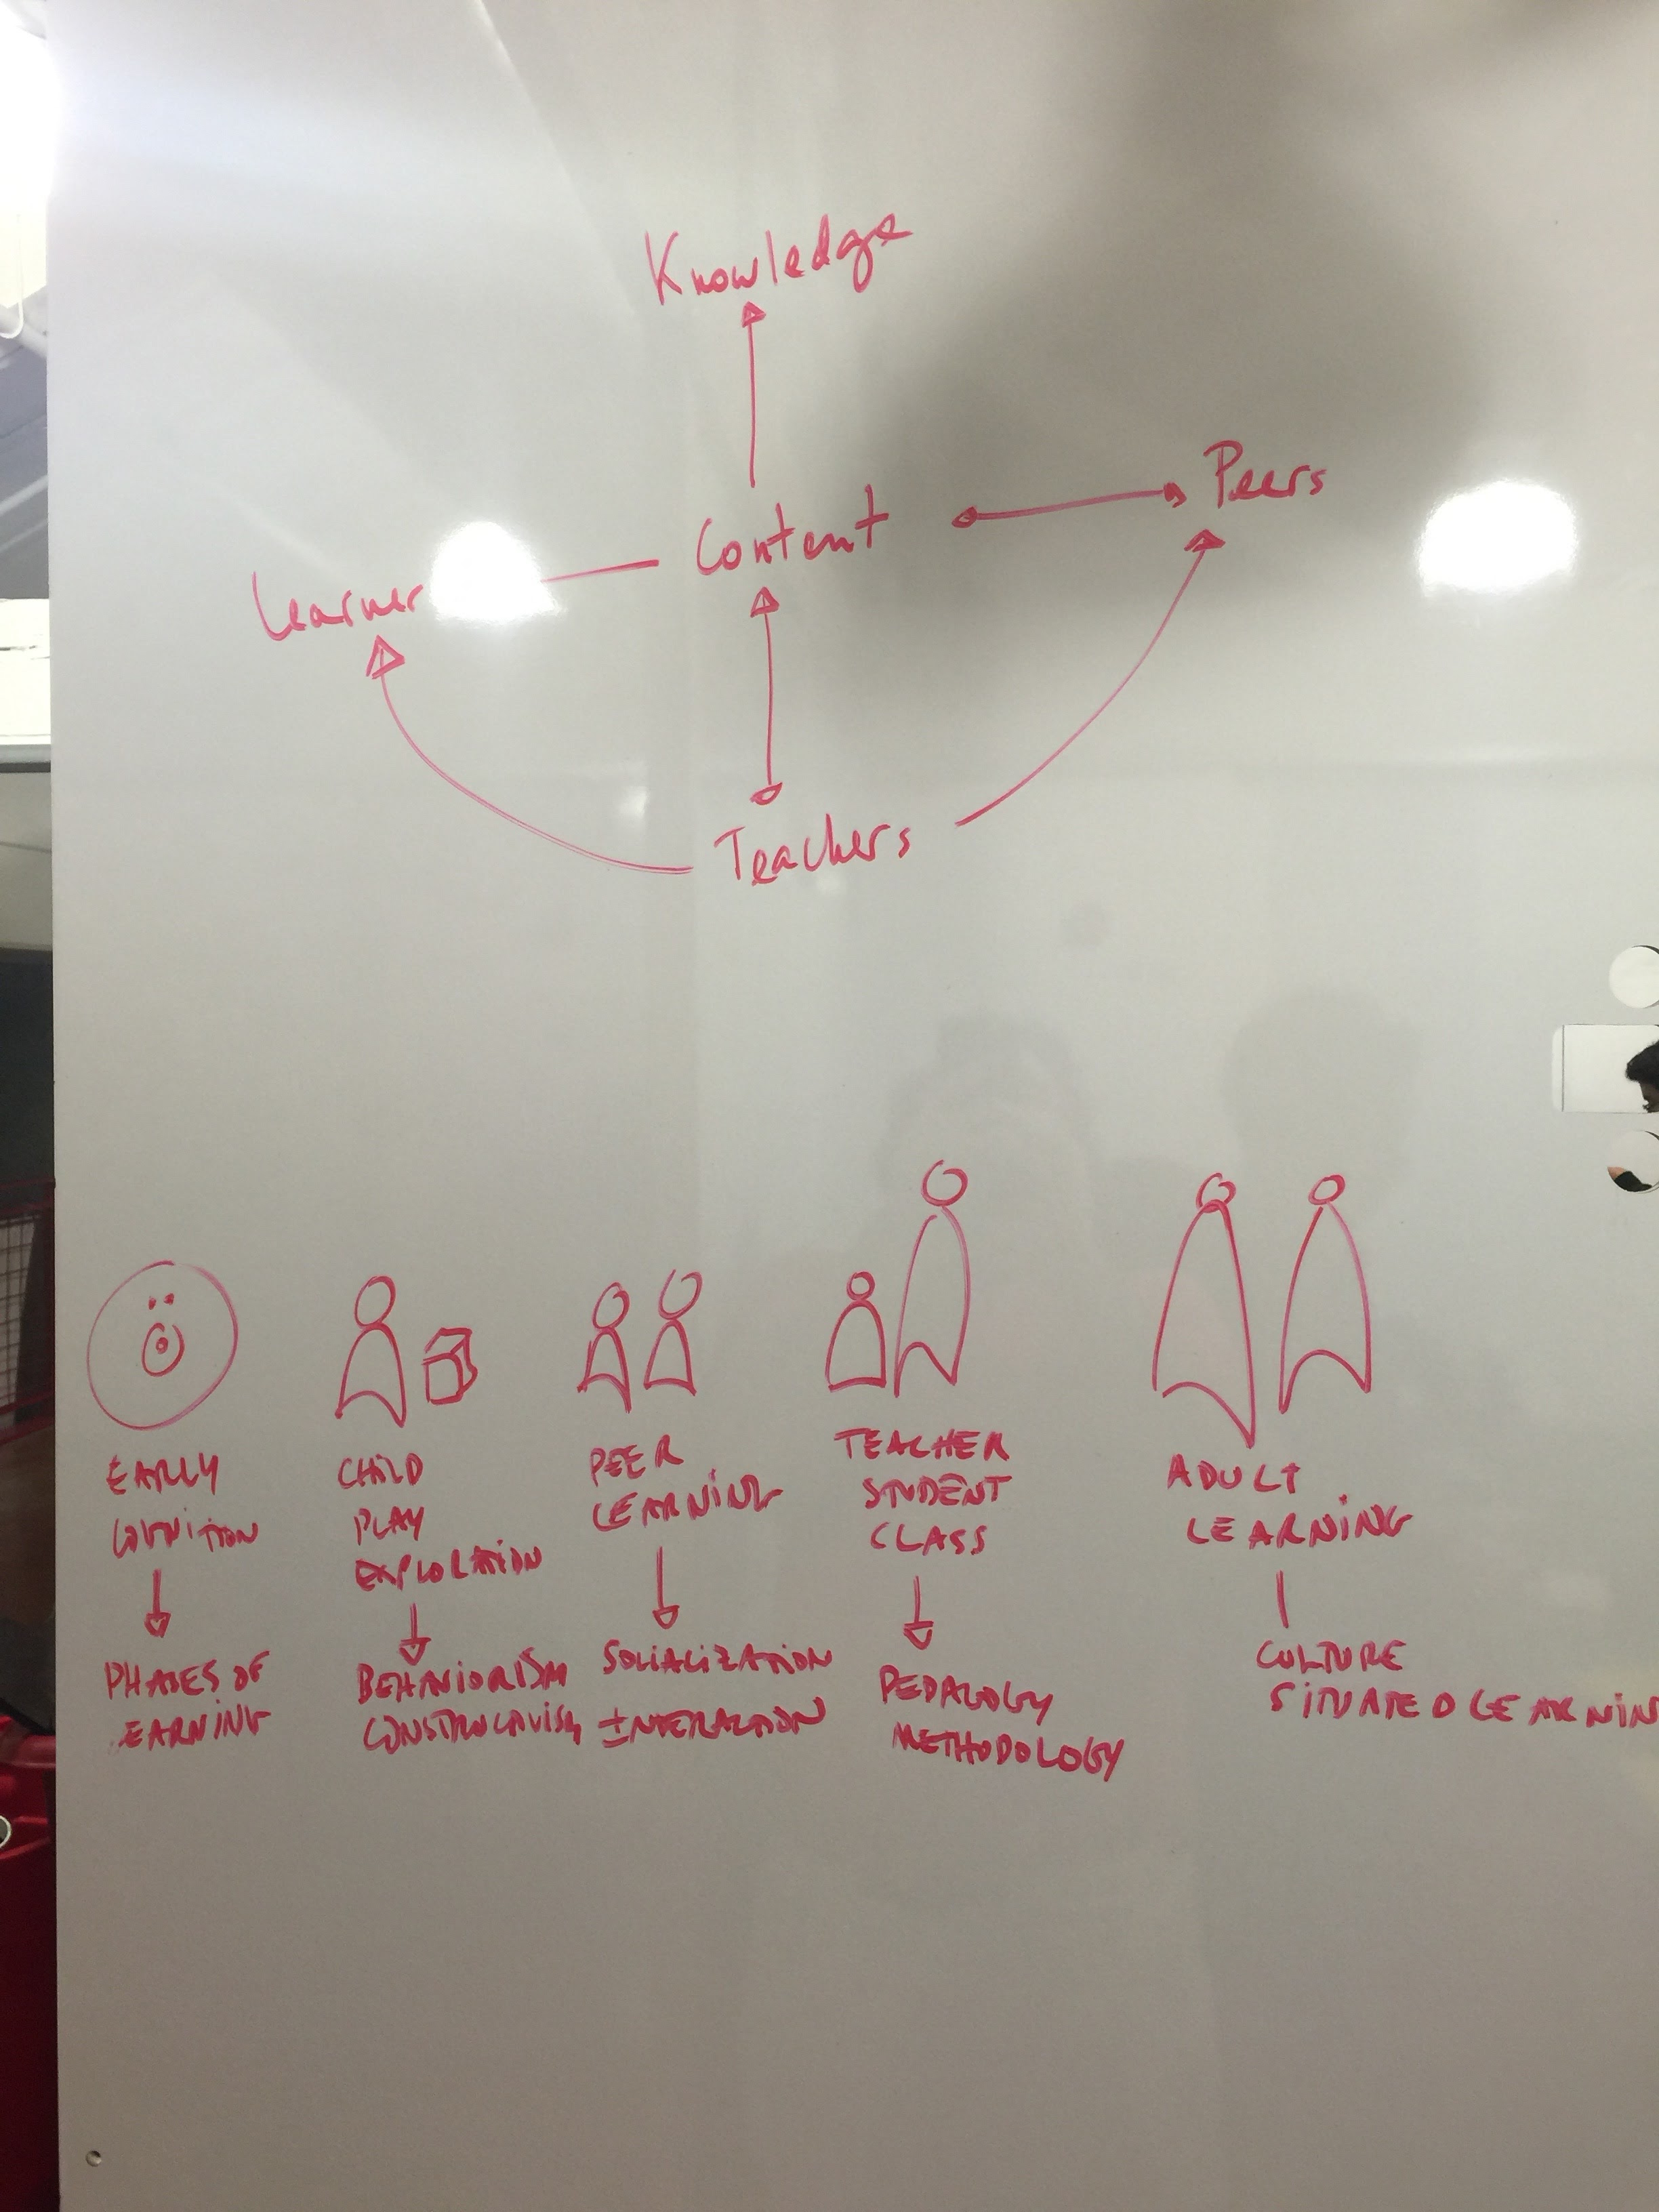 Knowledge
Peers
Content
Learner
Teachers
EARLY
COGNITION
PHASES OF
LEARNING
CHILD
PLAY
EXPLORATION
BEHAVIORISM
CONSTRUCTIVISM
PEER
LEARNING
SOCIALIZATION
INTERACTION
TEACHER
STUDENT
CLASS
PEDAGOGY
METHODOLOGY
ADULT
LEARNING
CULTURE
SITUATED LEARNIN